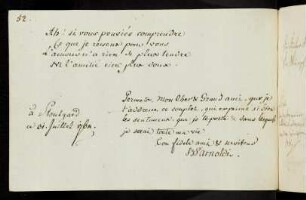 52.
Ah! si vous pouviés comprendre
Ce que je ressens pour vous
L'amour n'a rien de plus tendre
Ni l'amitié rien plus doux.
Permettés, mon Cher & Grand ami, que je
t'addresse ce couplet, qui exprime si bien
les sentimens que je te porte & dans lesquels
je serai toute ma vie
à Stoutgard
ce 21. Juillet 176
Ton fidele ami & serviteur